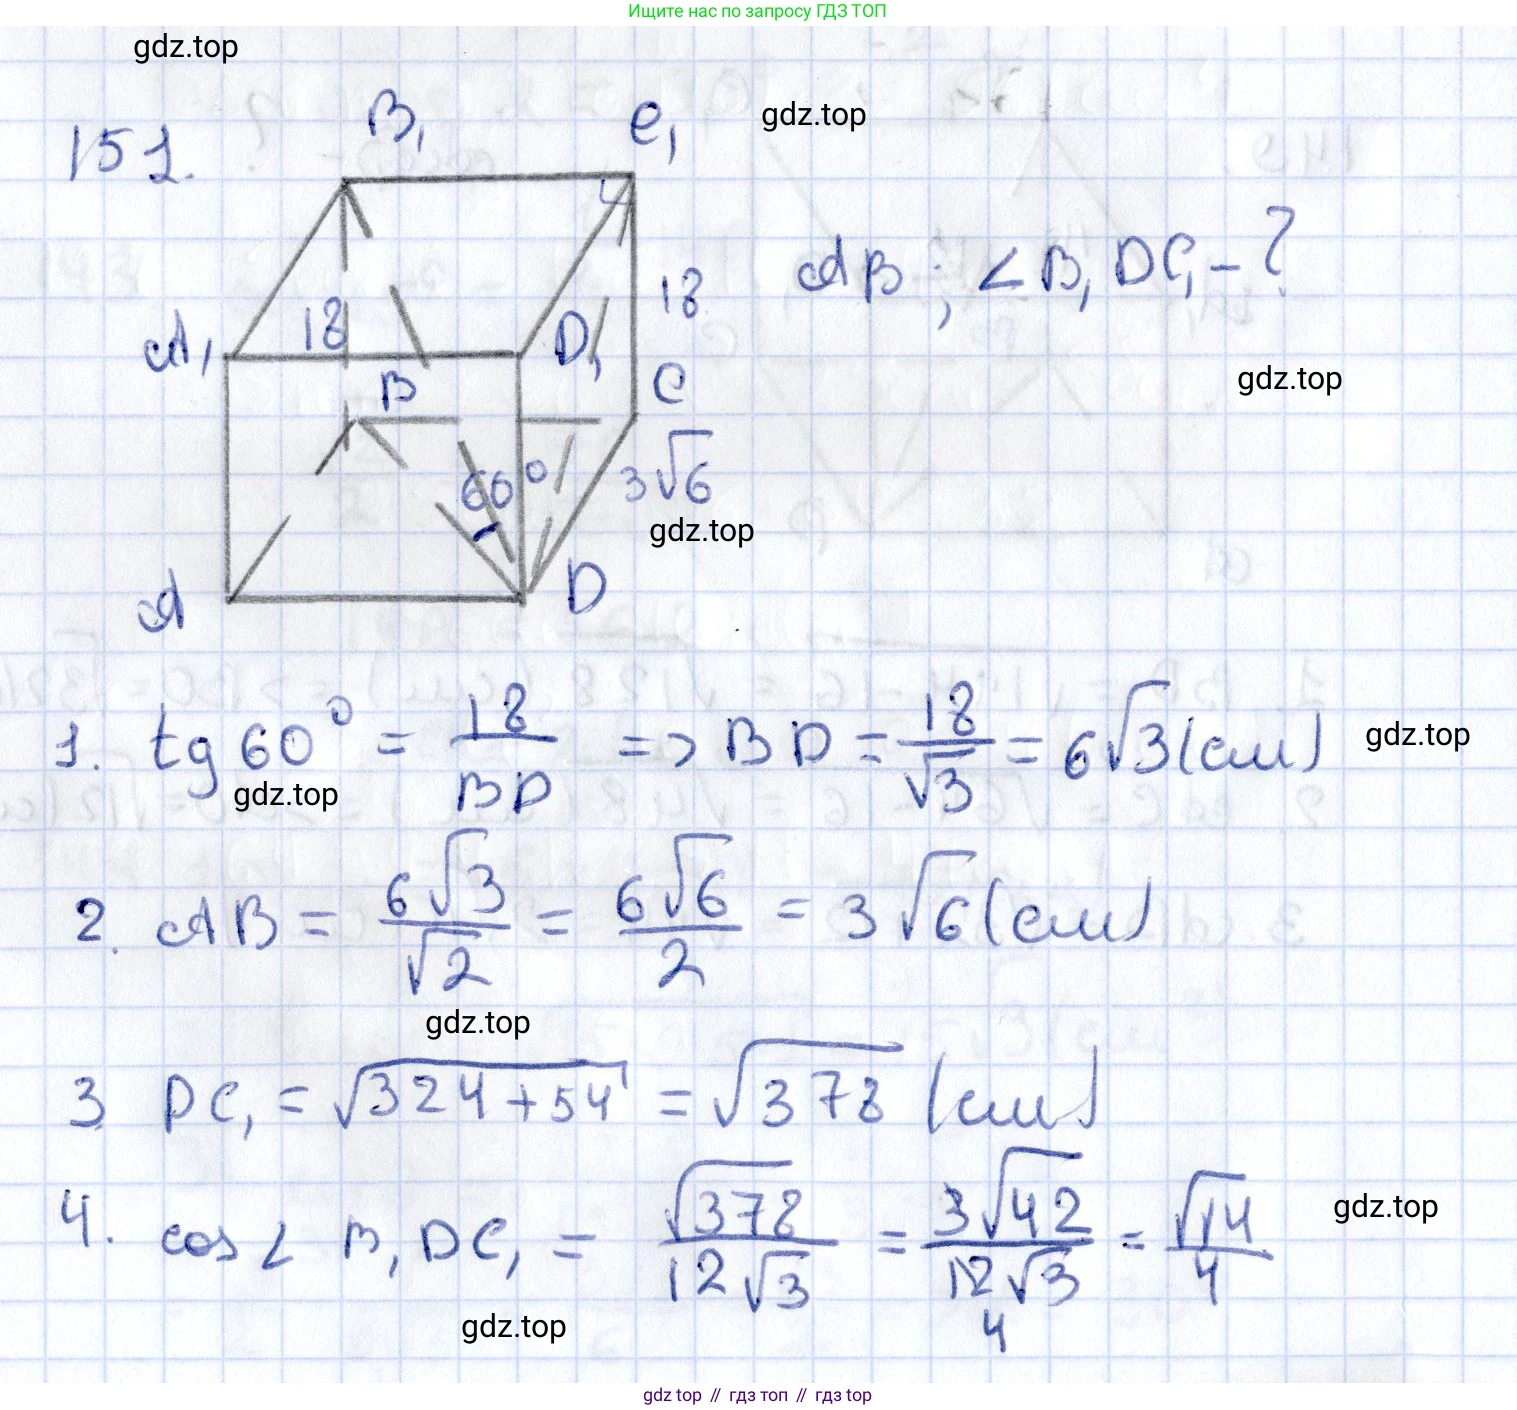 Ищите нас по запросу ГДЗ ТОП
gdz.top
151.
B₁
C₁
gdz.top
AB; ∠B₁DC₁ - ?
18
18
A₁
D₁
B
C
gdz.top
60°
3√6
gdz.top
A
D
1. tg 60° = 18/BD => BD = 18/√3 = 6√3 (см)
gdz.top
gdz.top
2. AB = 6√3/√2 = 6√6/2 = 3√6 (см)
gdz.top
3 DC₁ = √324+54 = √378 (см)
4. cos∠ B₁DC₁ = √378/12√3 = 3√42/12√3 = √14/4
4
gdz.top
gdz.top
gdz top // гдз топ // гдз top